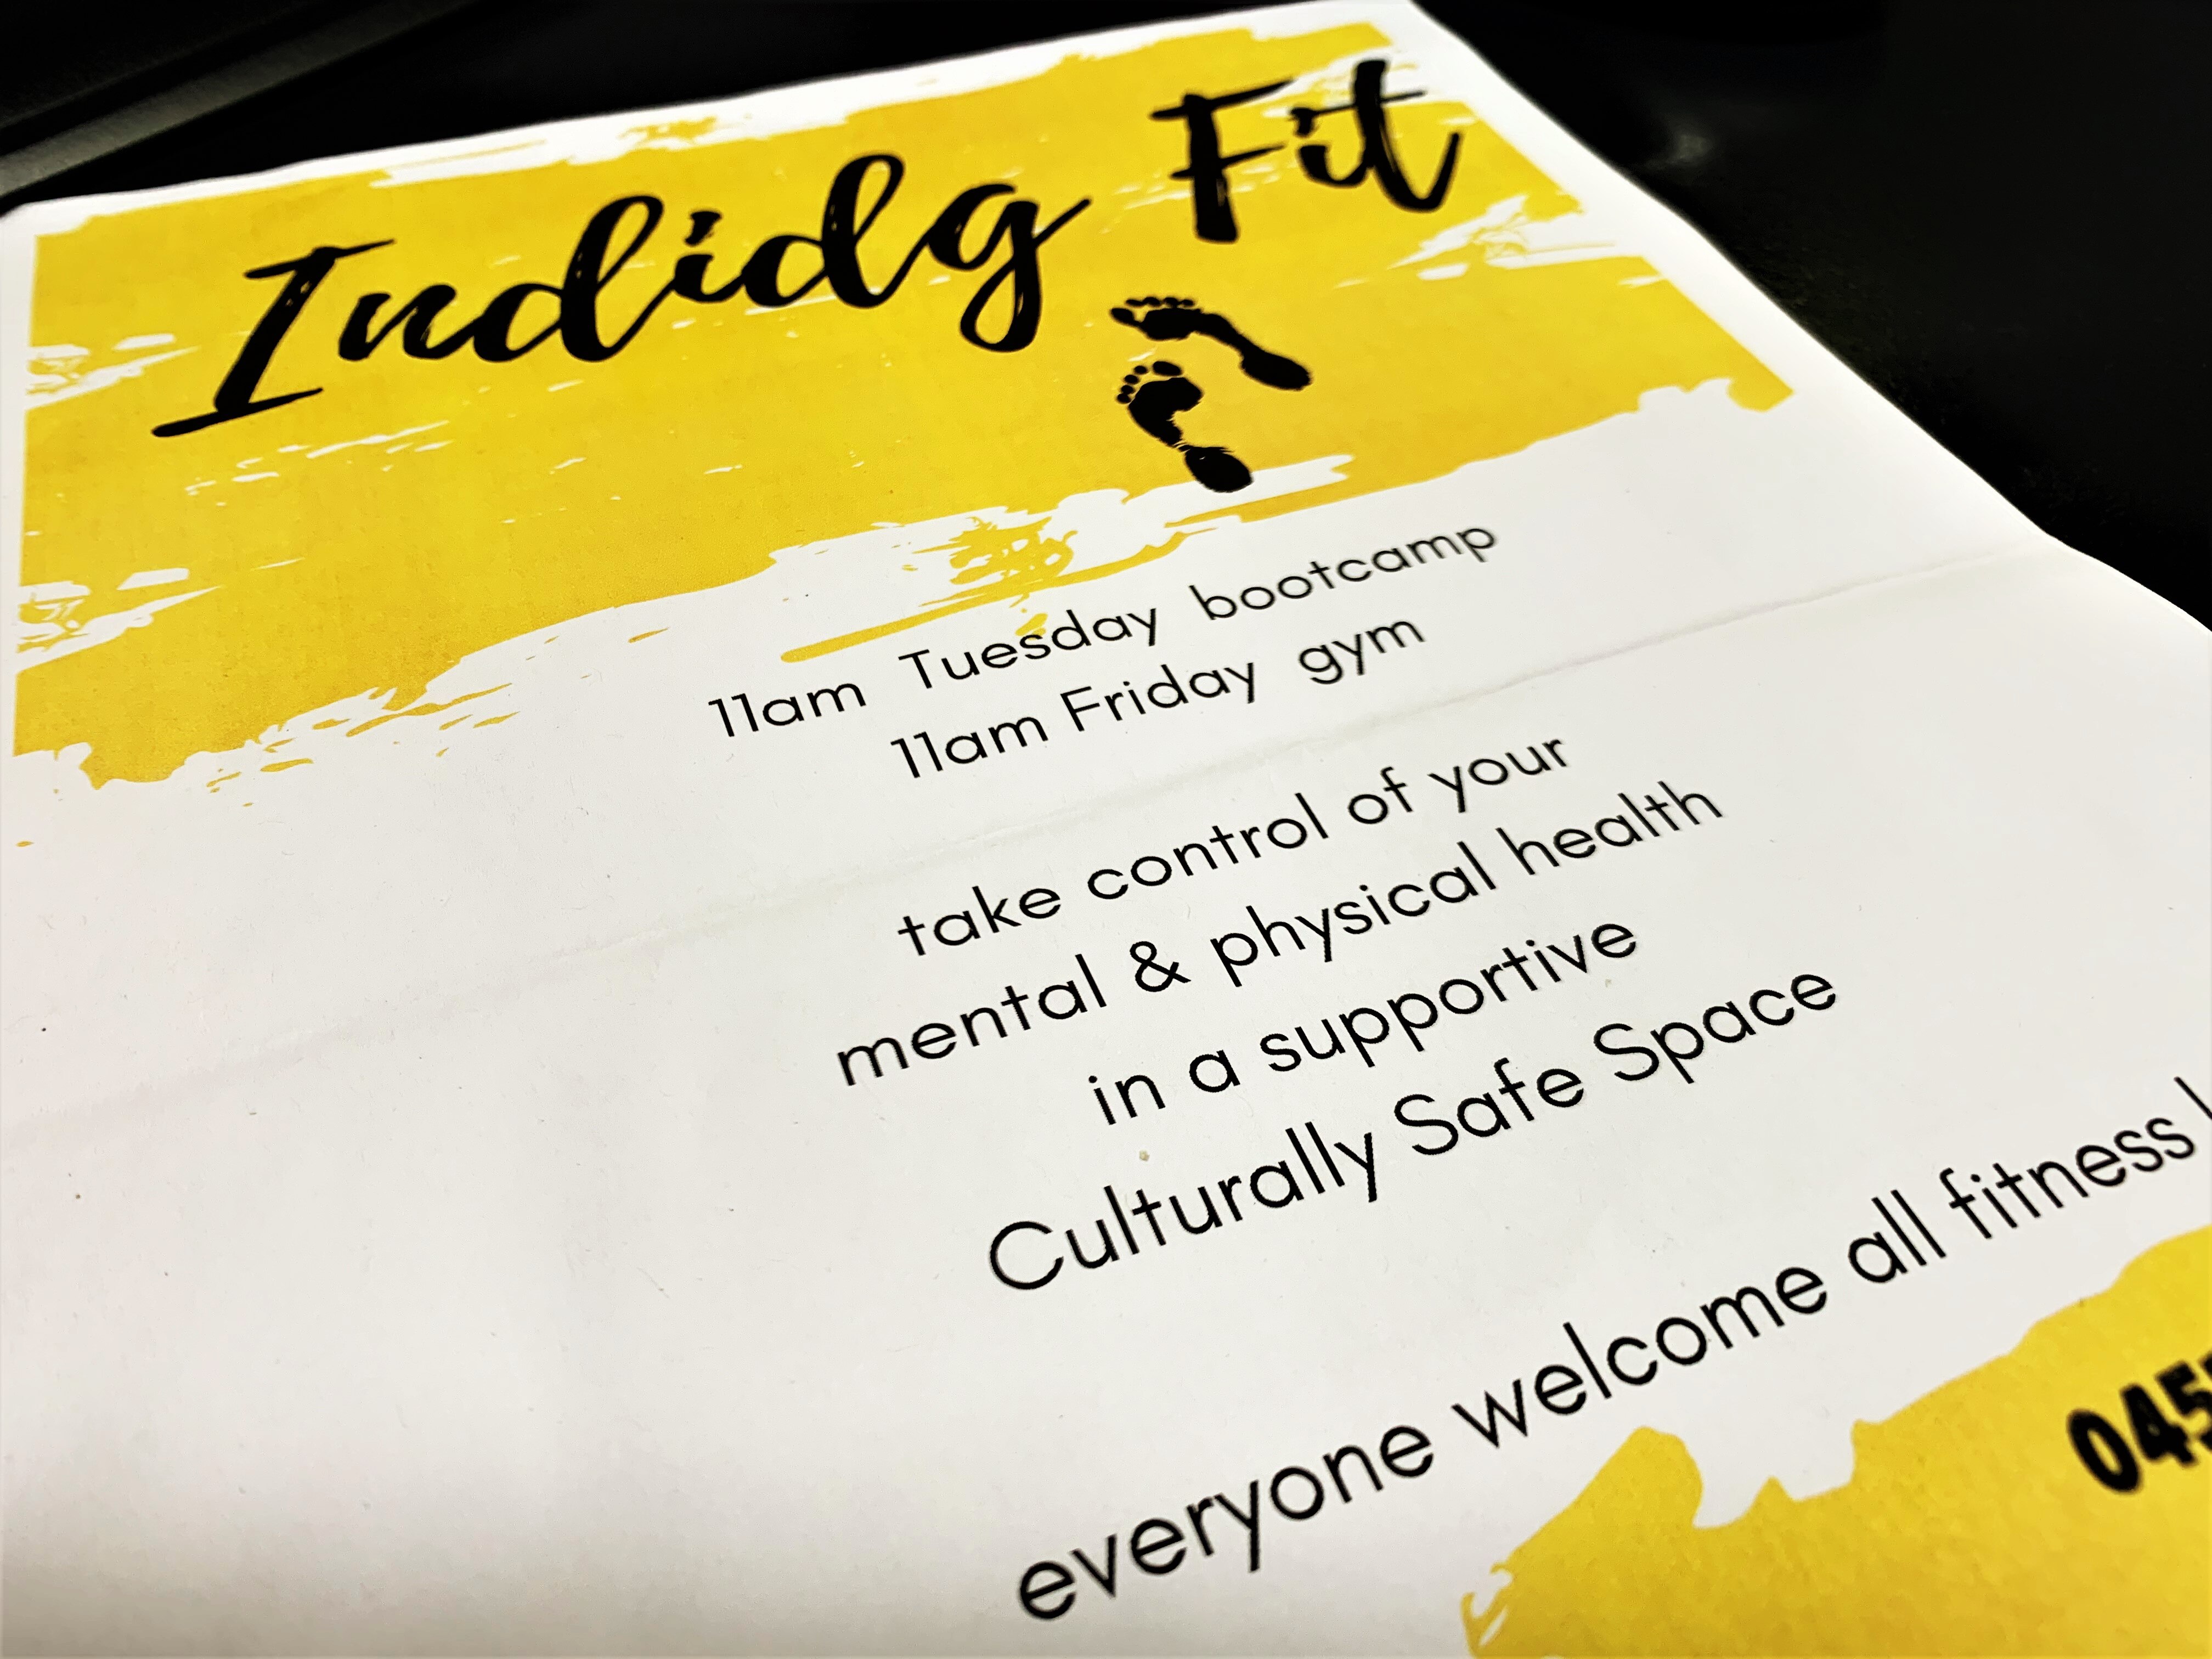 Indidg Fit
11am Tuesday bootcamp
11am Friday gym
take control of your
mental & physical health
in a supportive
Culturally Safe Space
everyone welcome all fitness
045